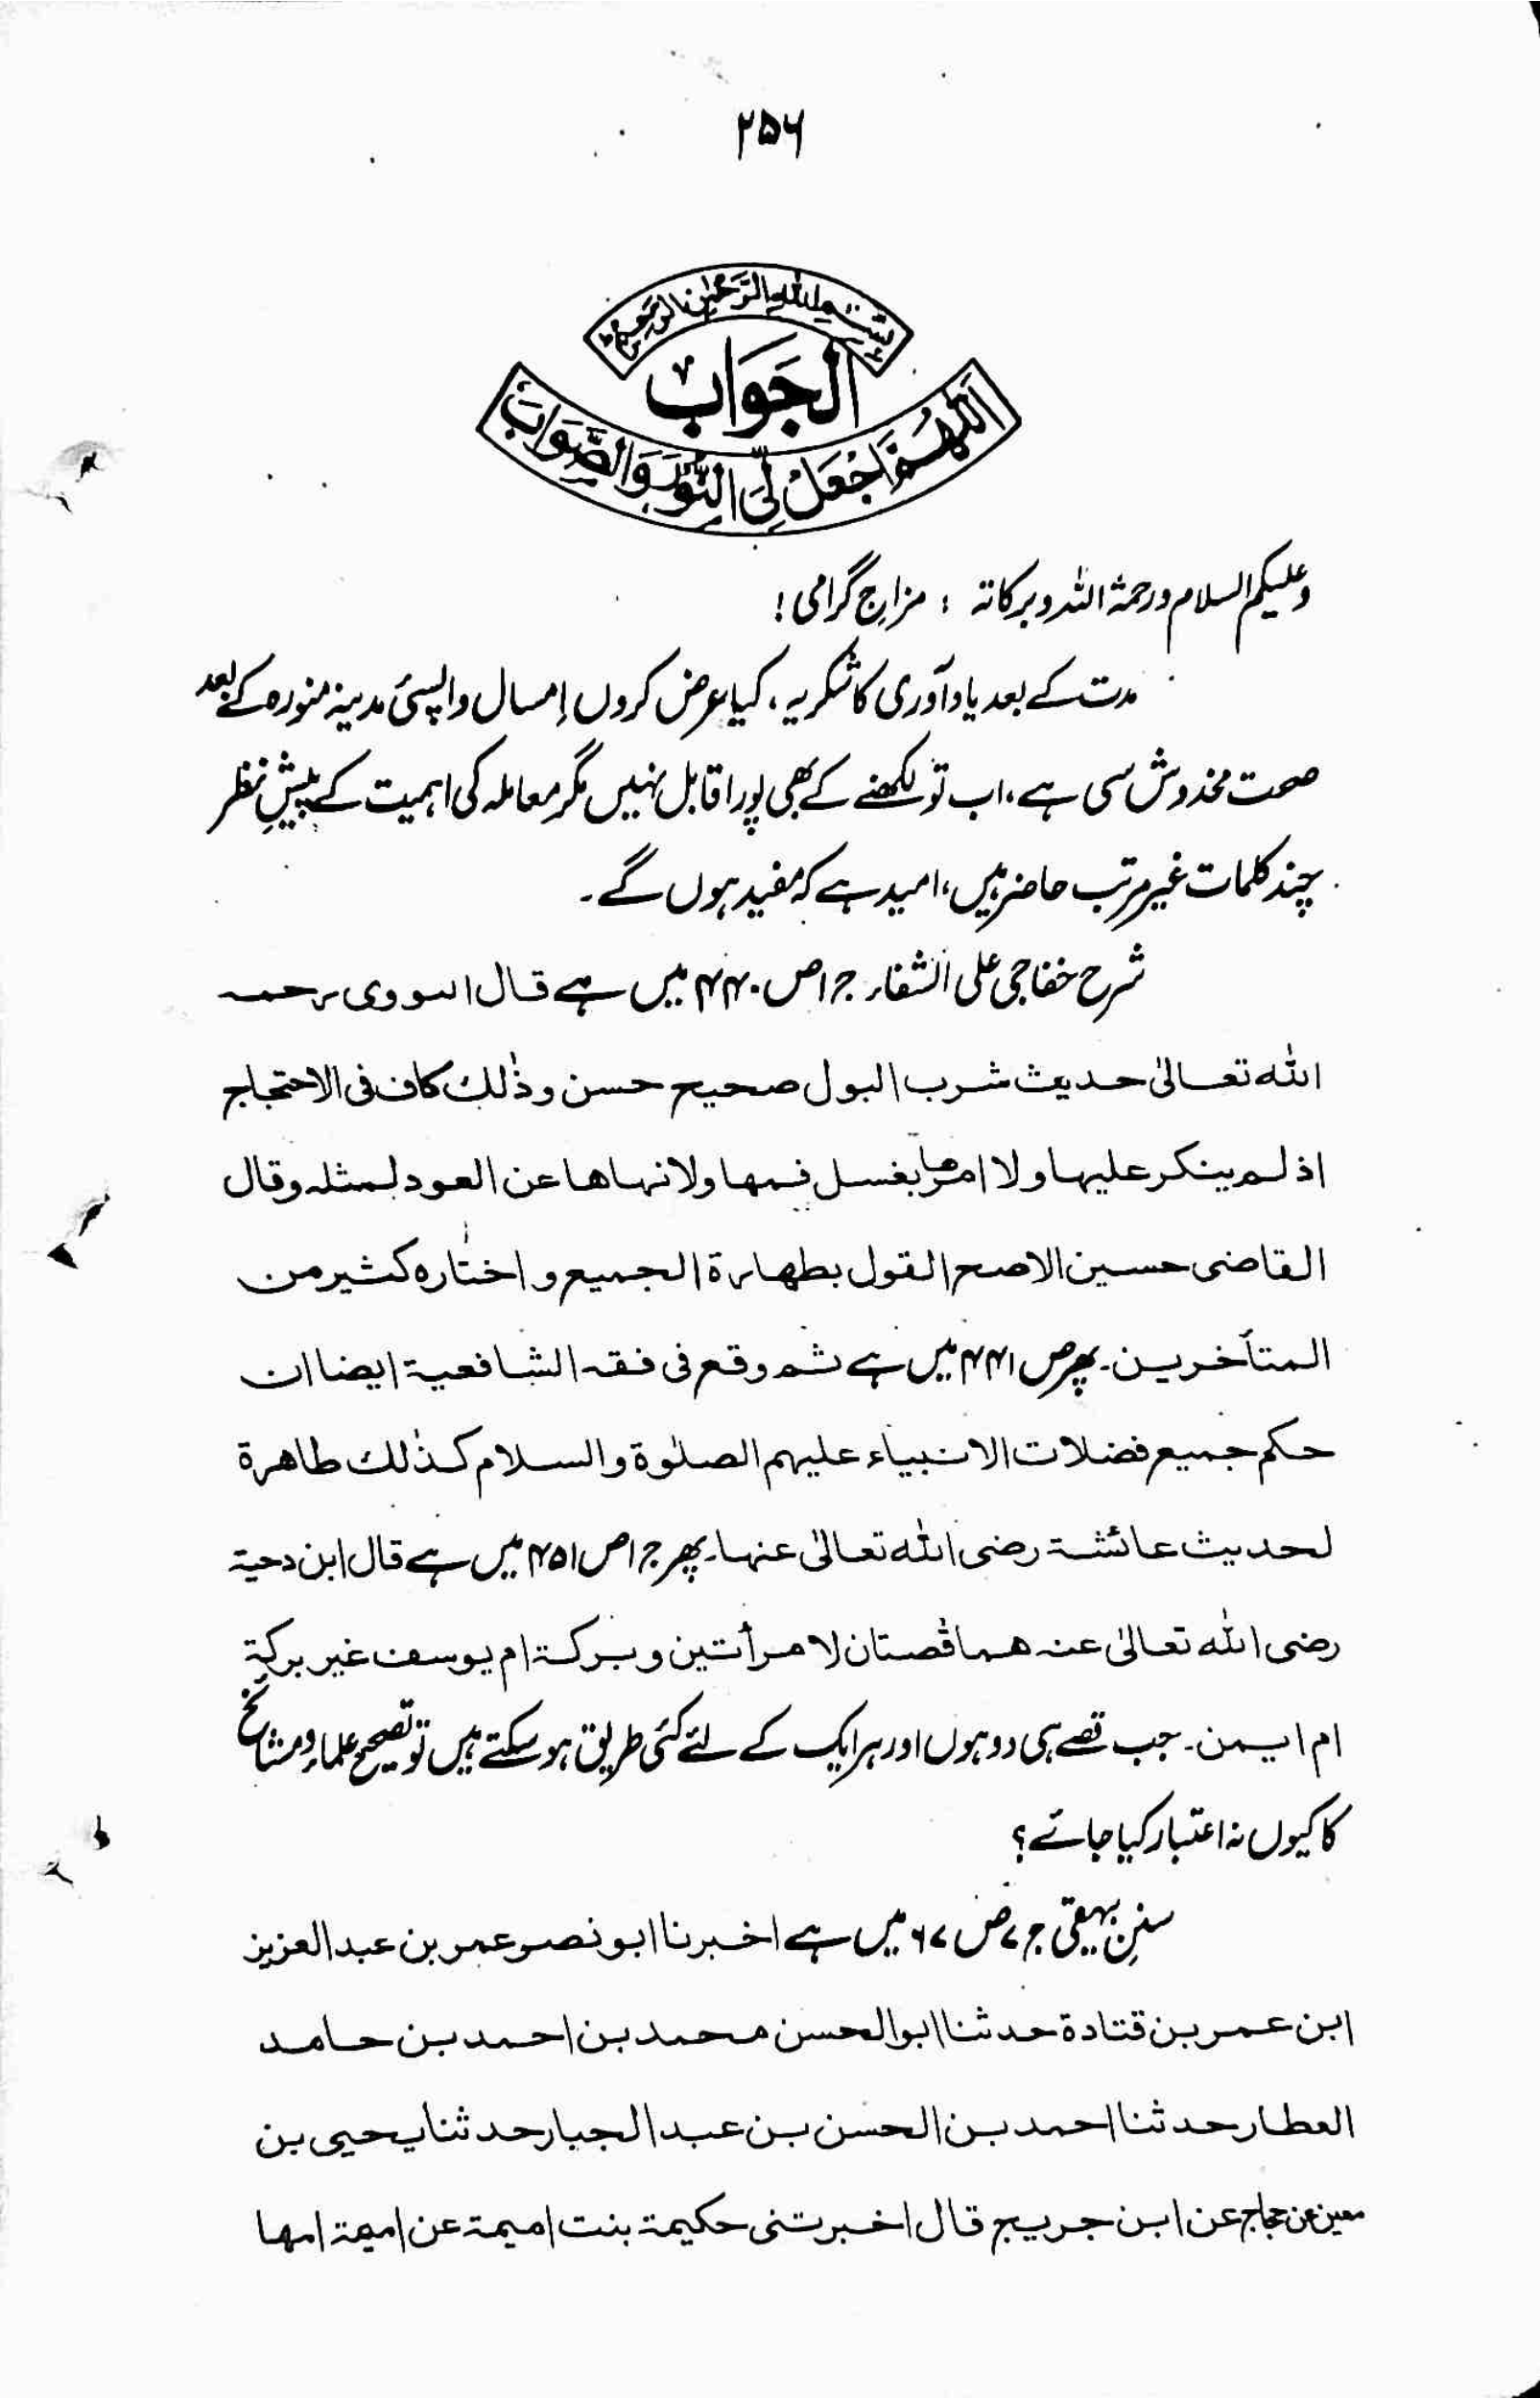 ۲۵۶
بسم الله الرحمن الرحيم
الجَوَابُ
اَللّٰهُمَّ اجْعَلْ لِّیَ النُّوْرَ وَالصَّوَابَ
وعلیکم السلام ورحمۃ اللہ وبرکاتہ : مزاجِ گرامی!
مدت کے بعد یادآوری کا شکریہ، کیا عرض کروں اِمسال واپسیٔ مدینہ منورہ کے بعد
صحت مخدوش سی ہے، اب تو لکھنے کے بھی پورا قابل نہیں مگر معاملہ کی اہمیت کے پیشِ نظر
چند کلمات غیر مرتب حاضر ہیں، امید ہے کہ مفید ہوں گے۔
شرح خفاجی علی الشفاء ج ۱ ص ۴۴۰ میں ہے قال النووی رحمہ
الله تعالیٰ حدیث شرب البول صحیح حسن وذٰلك کاف فی الاحتجاج
اذ لم ینکر علیہا ولا امرھا بغسل فمھا ولا نہاھا عن العود لمثلہ وقال
القاضی حسین الاصح القول بطہارۃ الجمیع و اختارہ کثیر من
المتأخرین۔ پھر ص ۴۴۱ میں ہے ثم وقع فی فقہ الشافعیۃ ایضا ان
حکم جمیع فضلات الانبیاء علیہم الصلوٰۃ والسلام کذٰلك طاھرۃ
لحدیث عائشۃ رضی الله تعالیٰ عنہا۔ پھر ج ۱ ص ۴۵۱ میں ہے قال ابن دحیۃ
رضی الله تعالیٰ عنہ ھما قصتان لامرأتین وبرکۃ ام یوسف غیر برکۃ
ام ایمن۔ جب قصے ہی دو ہوں اور ہر ایک کے لئے کئی طریق ہو سکتے ہیں تو تصحیح علماء ومشائخ
کا کیوں نہ اعتبار کیا جائے؟
سننِ بہیقی ج ۷ ص ۶۷ میں ہے اخبرنا ابو نصر عمر بن عبد العزیز
ابن عمر بن قتادۃ حدثنا ابوالحسن محمد بن احمد بن حامد
العطار حدثنا احمد بن الحسن بن عبد الجبار حدثنا یحیی بن
معین عن حجاج عن ابن جریج قال اخبرتنی حکیمۃ بنت امیمۃ عن امیمۃ امھا